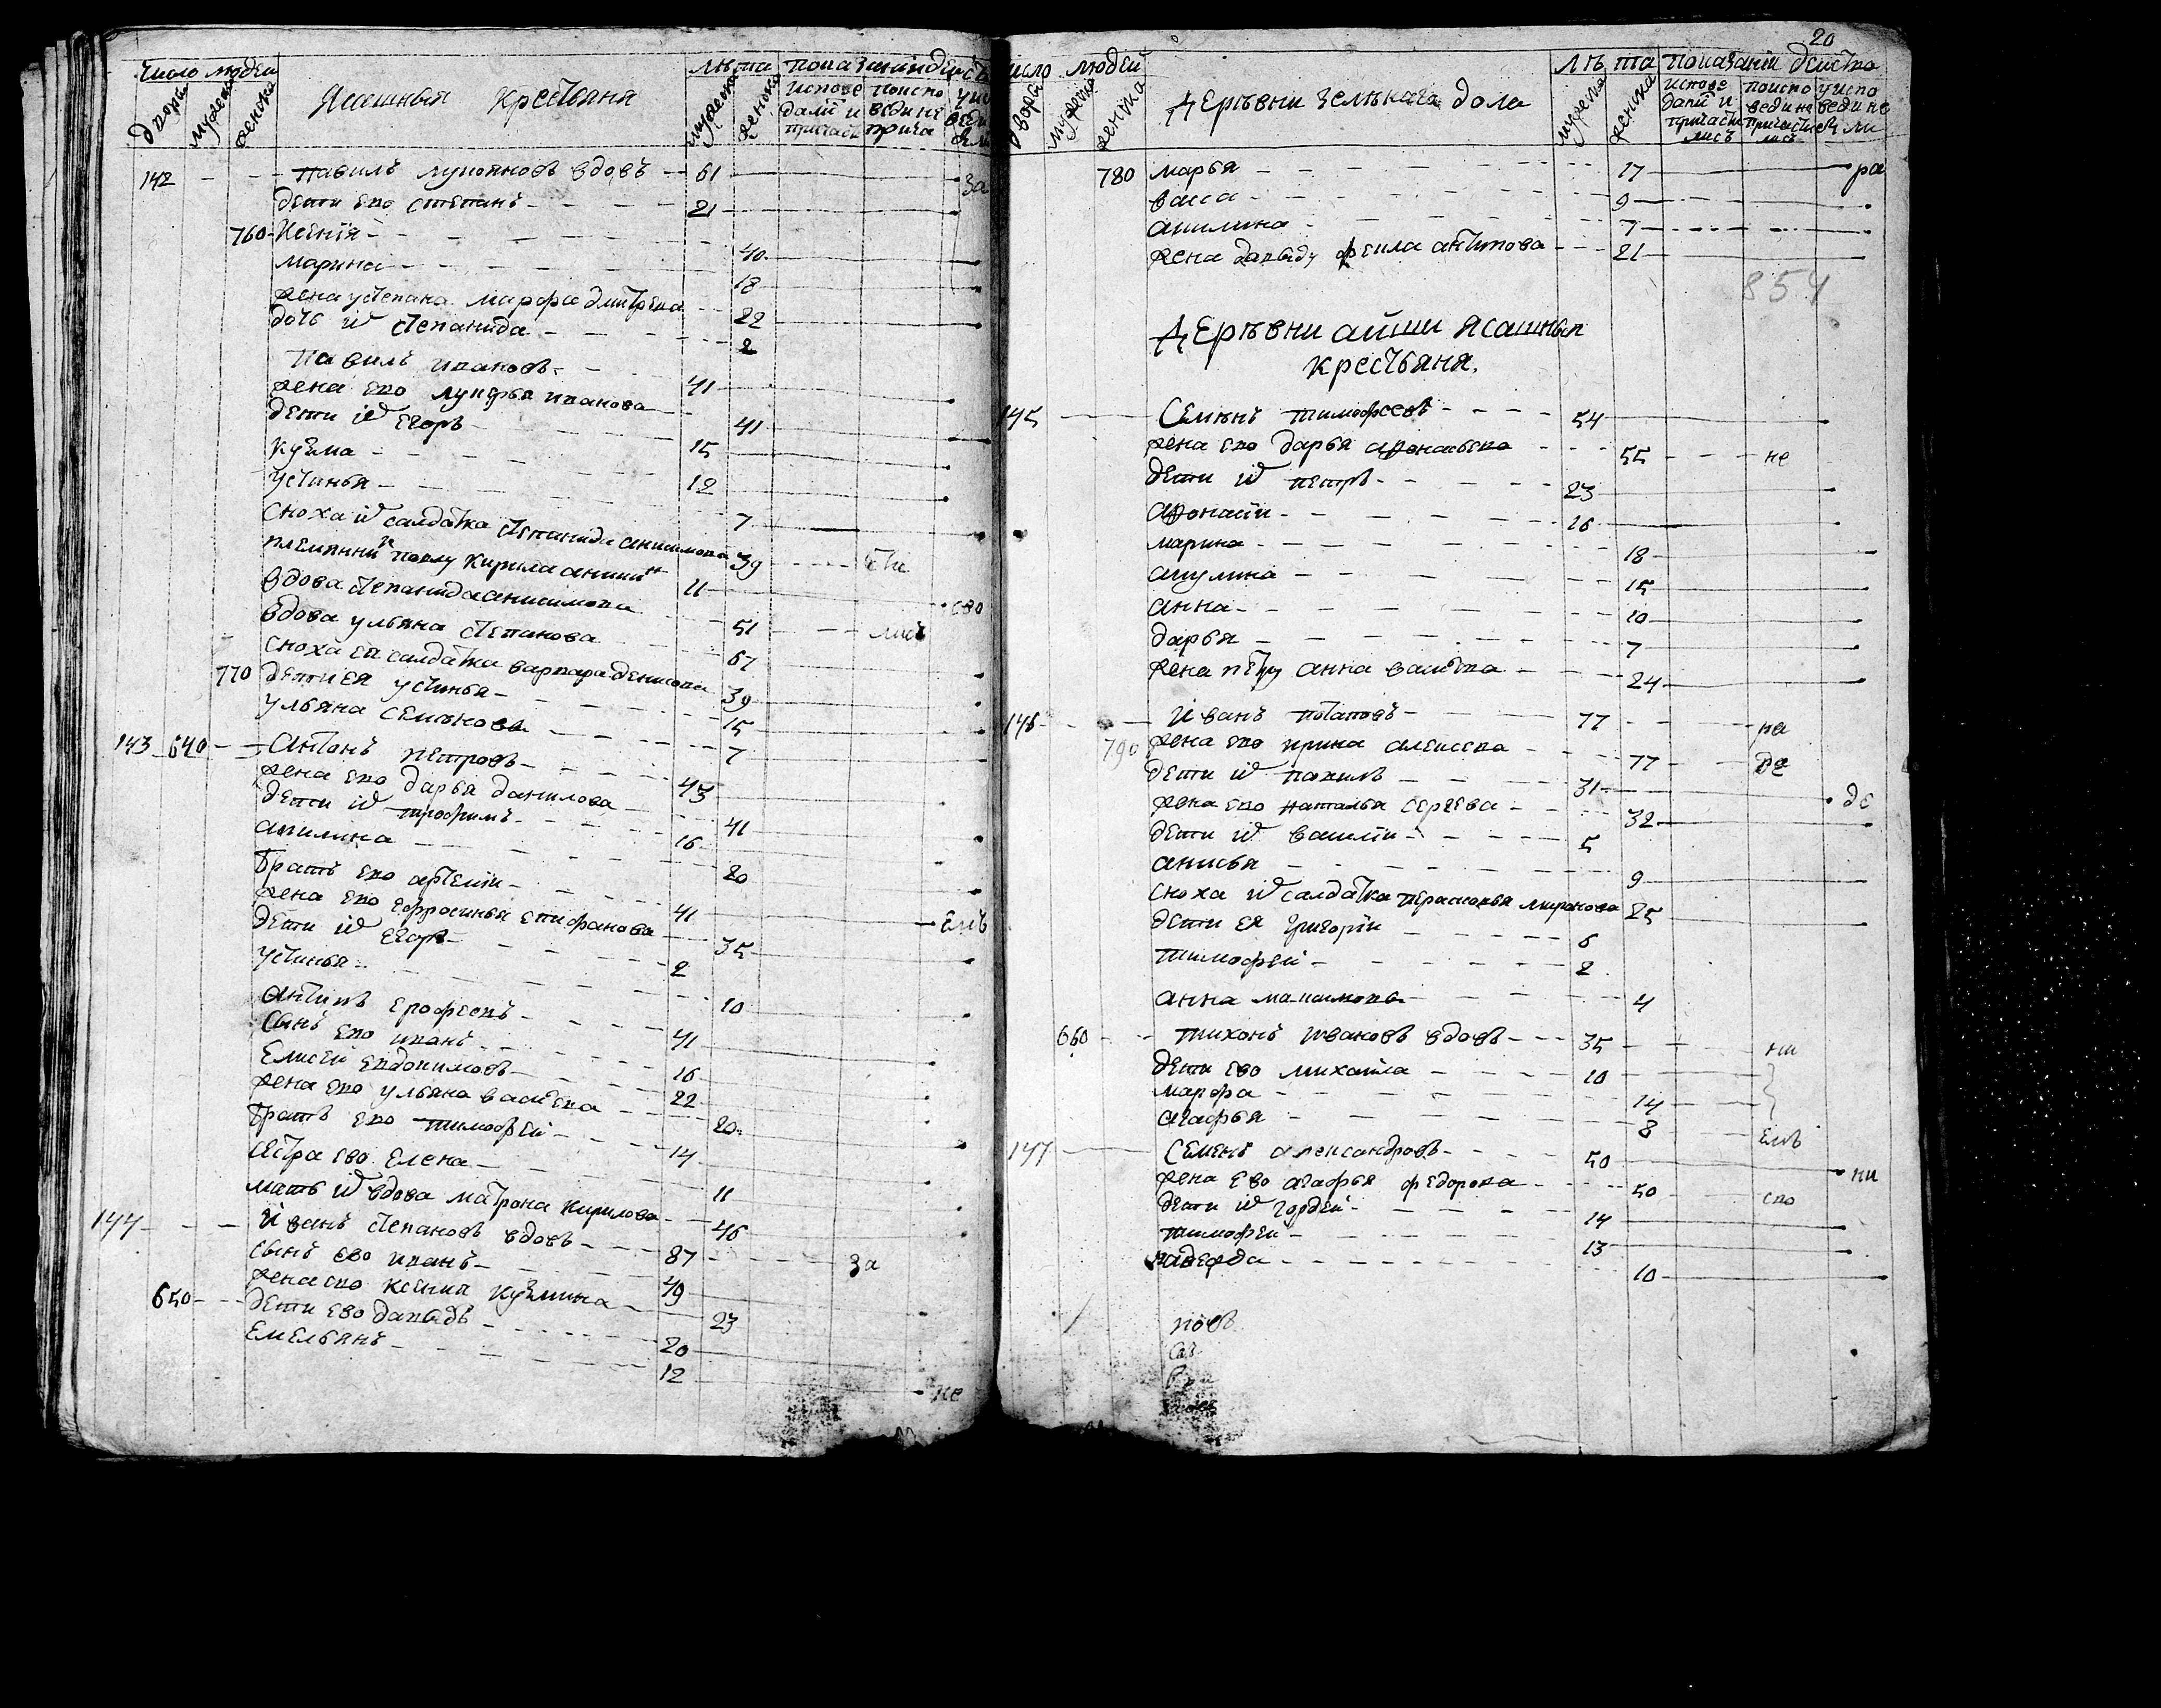 Число людей лѣта показаниі действ
дворы мужеска женска Ясашныя крестьяня мужеска женска испове поиспо уис
далис и ведине веди
причас прича
142 павилъ лукояновъ вдовъ 61 за
дети ево степанъ 21
760 Ксения 40
марина 18
жена устепана марфа дмитрева 22
дочь их степанида 2
павилъ ивановъ 41
жена ево лукерья иванова 41
дети их Егоръ 15
кузма 12
устинья 7
сноха их салдатка степанида анисимова 39
племянник павлу Кирила аники 11 сво
вдова степанида анисимова 51
вдова ульяна степанова 67
сноха ея салдатка варвара денисова 39
770 дети ея устинья 15
ульяна семѣнова 7
143 640 Антонъ петровъ 45
жена ево дарья данилова 41
дети их трофимъ 16
акилина 20
братъ ево артемии 41
жена ево ефросинья епифанова 35 емъ
дети их егоръ 2
устинья 10
антипъ ерофеевъ 41
сынъ ево иванъ 16
Елисеи евдокимовъ 22
жена ево ульяна васильева 20
братъ ево тимофеи 14
сестра ево Елена 11
мать их вдова матрона кирилова 46
144 Иванъ степановъ вдовъ 87 за
сынъ ево иванъ 49
жена ево ксения кузмина 23
650 дети ево давыдъ 20
Емельянъ 12 не
20
число людей лѣта показаниі действо
двора мужеска женска деревни зелѣнага дола мужеска женска испове поиспо уиспо
далиі и ведине ведине
причасти причасти
лись лись
780 марья 17 ра
васса 9
акилина 7
жена давыду фекла антипова 21
854
Деревни айши Ясашныя
крестьяня.
145 Семѣнъ тимофеевъ 54
жена ево дарья афонасьева 55 не
дети их петръ 23
афонасии 16
марина 18
акулина 15
анна 10
дарья 7
жена петру анна васильева 24
146 Иванъ потаповъ 77 на
790 жена ево ирина алексеева 77 де
дети их павилъ 31 де
жена ево наталья сергева 32
дети их василии 5
анисья 9
сноха их салдатка прасковья миронова 25
дети ея григории 6
тимофеи 2
анна максимова 4
660 тихонъ ивановъ вдовъ 35 ни
дети ево михаила 10
марфа 14
агафья 8 емъ
147 Семенъ александровъ 50 ни
жена ево агафья федорова 50 сво
дети их гордеи 14
тимофеи 13
надежда 10